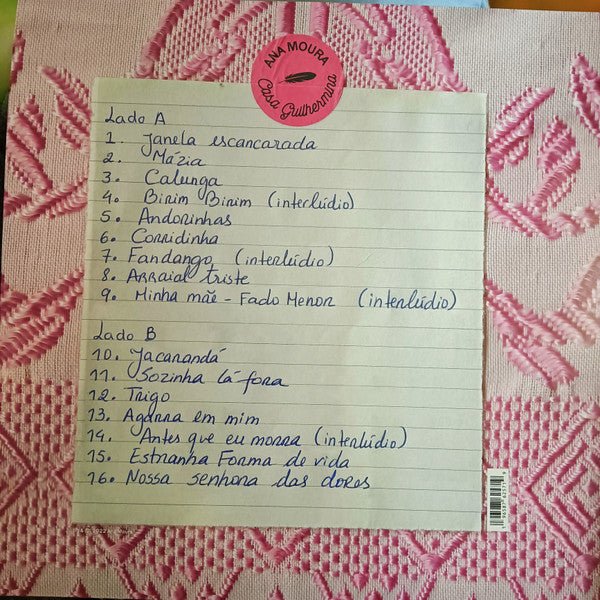 ANA MOURA
Casa Guilhermina
Lado A
1. Janela escancarada
2. Mázia
3. Calunga
4. Birim Birim (interlúdio)
5. Andorinhas
6. Corridinha
7. Fandango (interlúdio)
8. Arraial triste
9. Minha mãe - Fado Menor (interlúdio)
Lado B
10. Jacarandá
11. Sozinha lá fora
12. Trigo
13. Agarra em mim
14. Antes que eu morra (interlúdio)
15. Estranha Forma de vida
16. Nossa senhora das dores